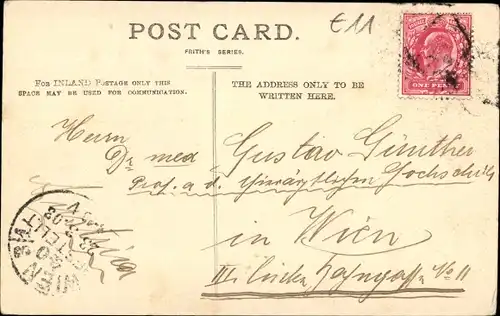 £11
POST CARD.
FRITH'S SERIES.
FOR INLAND POSTAGE ONLY THIS
SPACE MAY BE USED FOR COMMUNICATION.
THE ADDRESS ONLY TO BE
WRITTEN HERE.
ONE PENNY
Herrn
Dr med Gustav Günther
Prof. a. d. Tierärztlichen Hochschule
in Wien
III. Linke Bahngasse No 11
Austria
WIEN